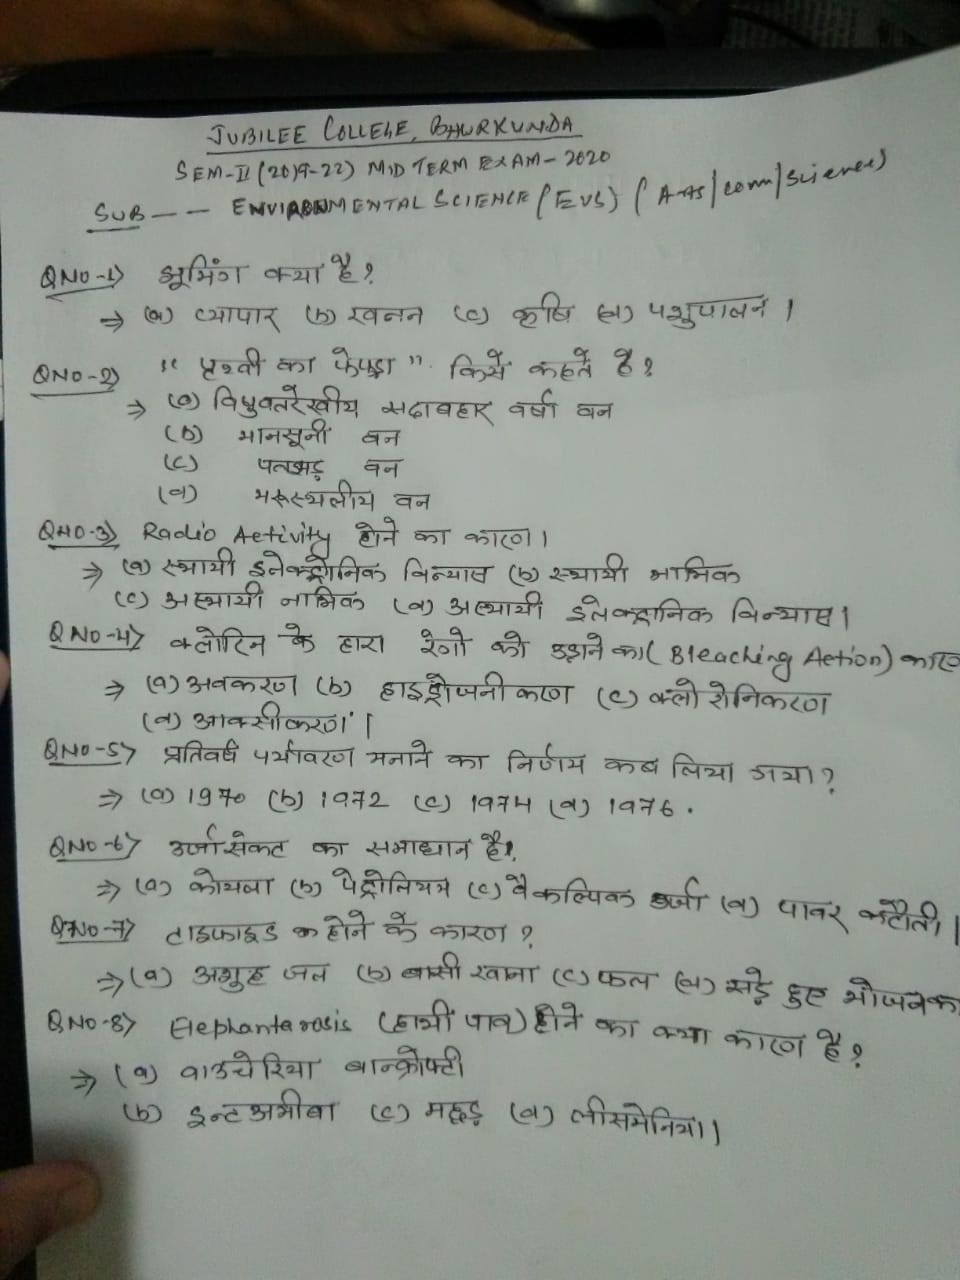 JUBILEE COLLEGE, BHURKUNDA
SEM-II (2019-22) MID TERM EXAM-2020
SUB -- - ENVIRONMENTAL SCIENCE (EVS) (Arts/comm/Science)
QNO-1) झूमिंग क्या है?
⇒ (a) व्यापार (b) खनन (c) कृषि (d) पशुपालन।
QNO-2) "पृथ्वी का फेफड़ा" किसे कहते है?
⇒ (a) विषुवतरेखीय सदाबहार वर्षा वन
(b) मानसूनी वन
(c) पतझड़ वन
(d) मरूस्थलीय वन
QNO-3) Radio Activity होने का कारण।
⇒ (a) स्थायी इलेक्ट्रोनिक विन्यास (b) स्थायी नाभिक
(c) अस्थायी नाभिक (d) अस्थायी इलेक्ट्रानिक विन्यास।
QNO-4) क्लोरिन के द्वारा रंगो को उड़ाने का (Bleaching Action) कारण
⇒ (a) अवकरण (b) हाइड्रोजनीकरण (c) क्लोरोनिकरण
(d) आक्सीकरण।
QNO-5) प्रतिवर्ष पर्यावरण मनाने का निर्णय कब लिया गया?
⇒ (a) 1970 (b) 1972 (c) 1974 (d) 1976.
QNO-6) उर्जा संकट का समाधान है?
⇒ (a) कोयला (b) पेट्रोलियम (c) वैकल्पिक उर्जा (d) पावर कटौती।
QNO-7) टाइफाइड होने के कारण?
⇒ (a) अशुद्ध जल (b) बासी खाना (c) फल (d) सड़े हुए भोजन का
QNO-8) Elephantarosis (हाथी पाव) होने का क्या कारण है?
⇒ (a) वाउचेरिया बान्क्रोफ्टी
(b) इन्टअमीबा (c) मच्छड़ (d) लीसमेनिया।